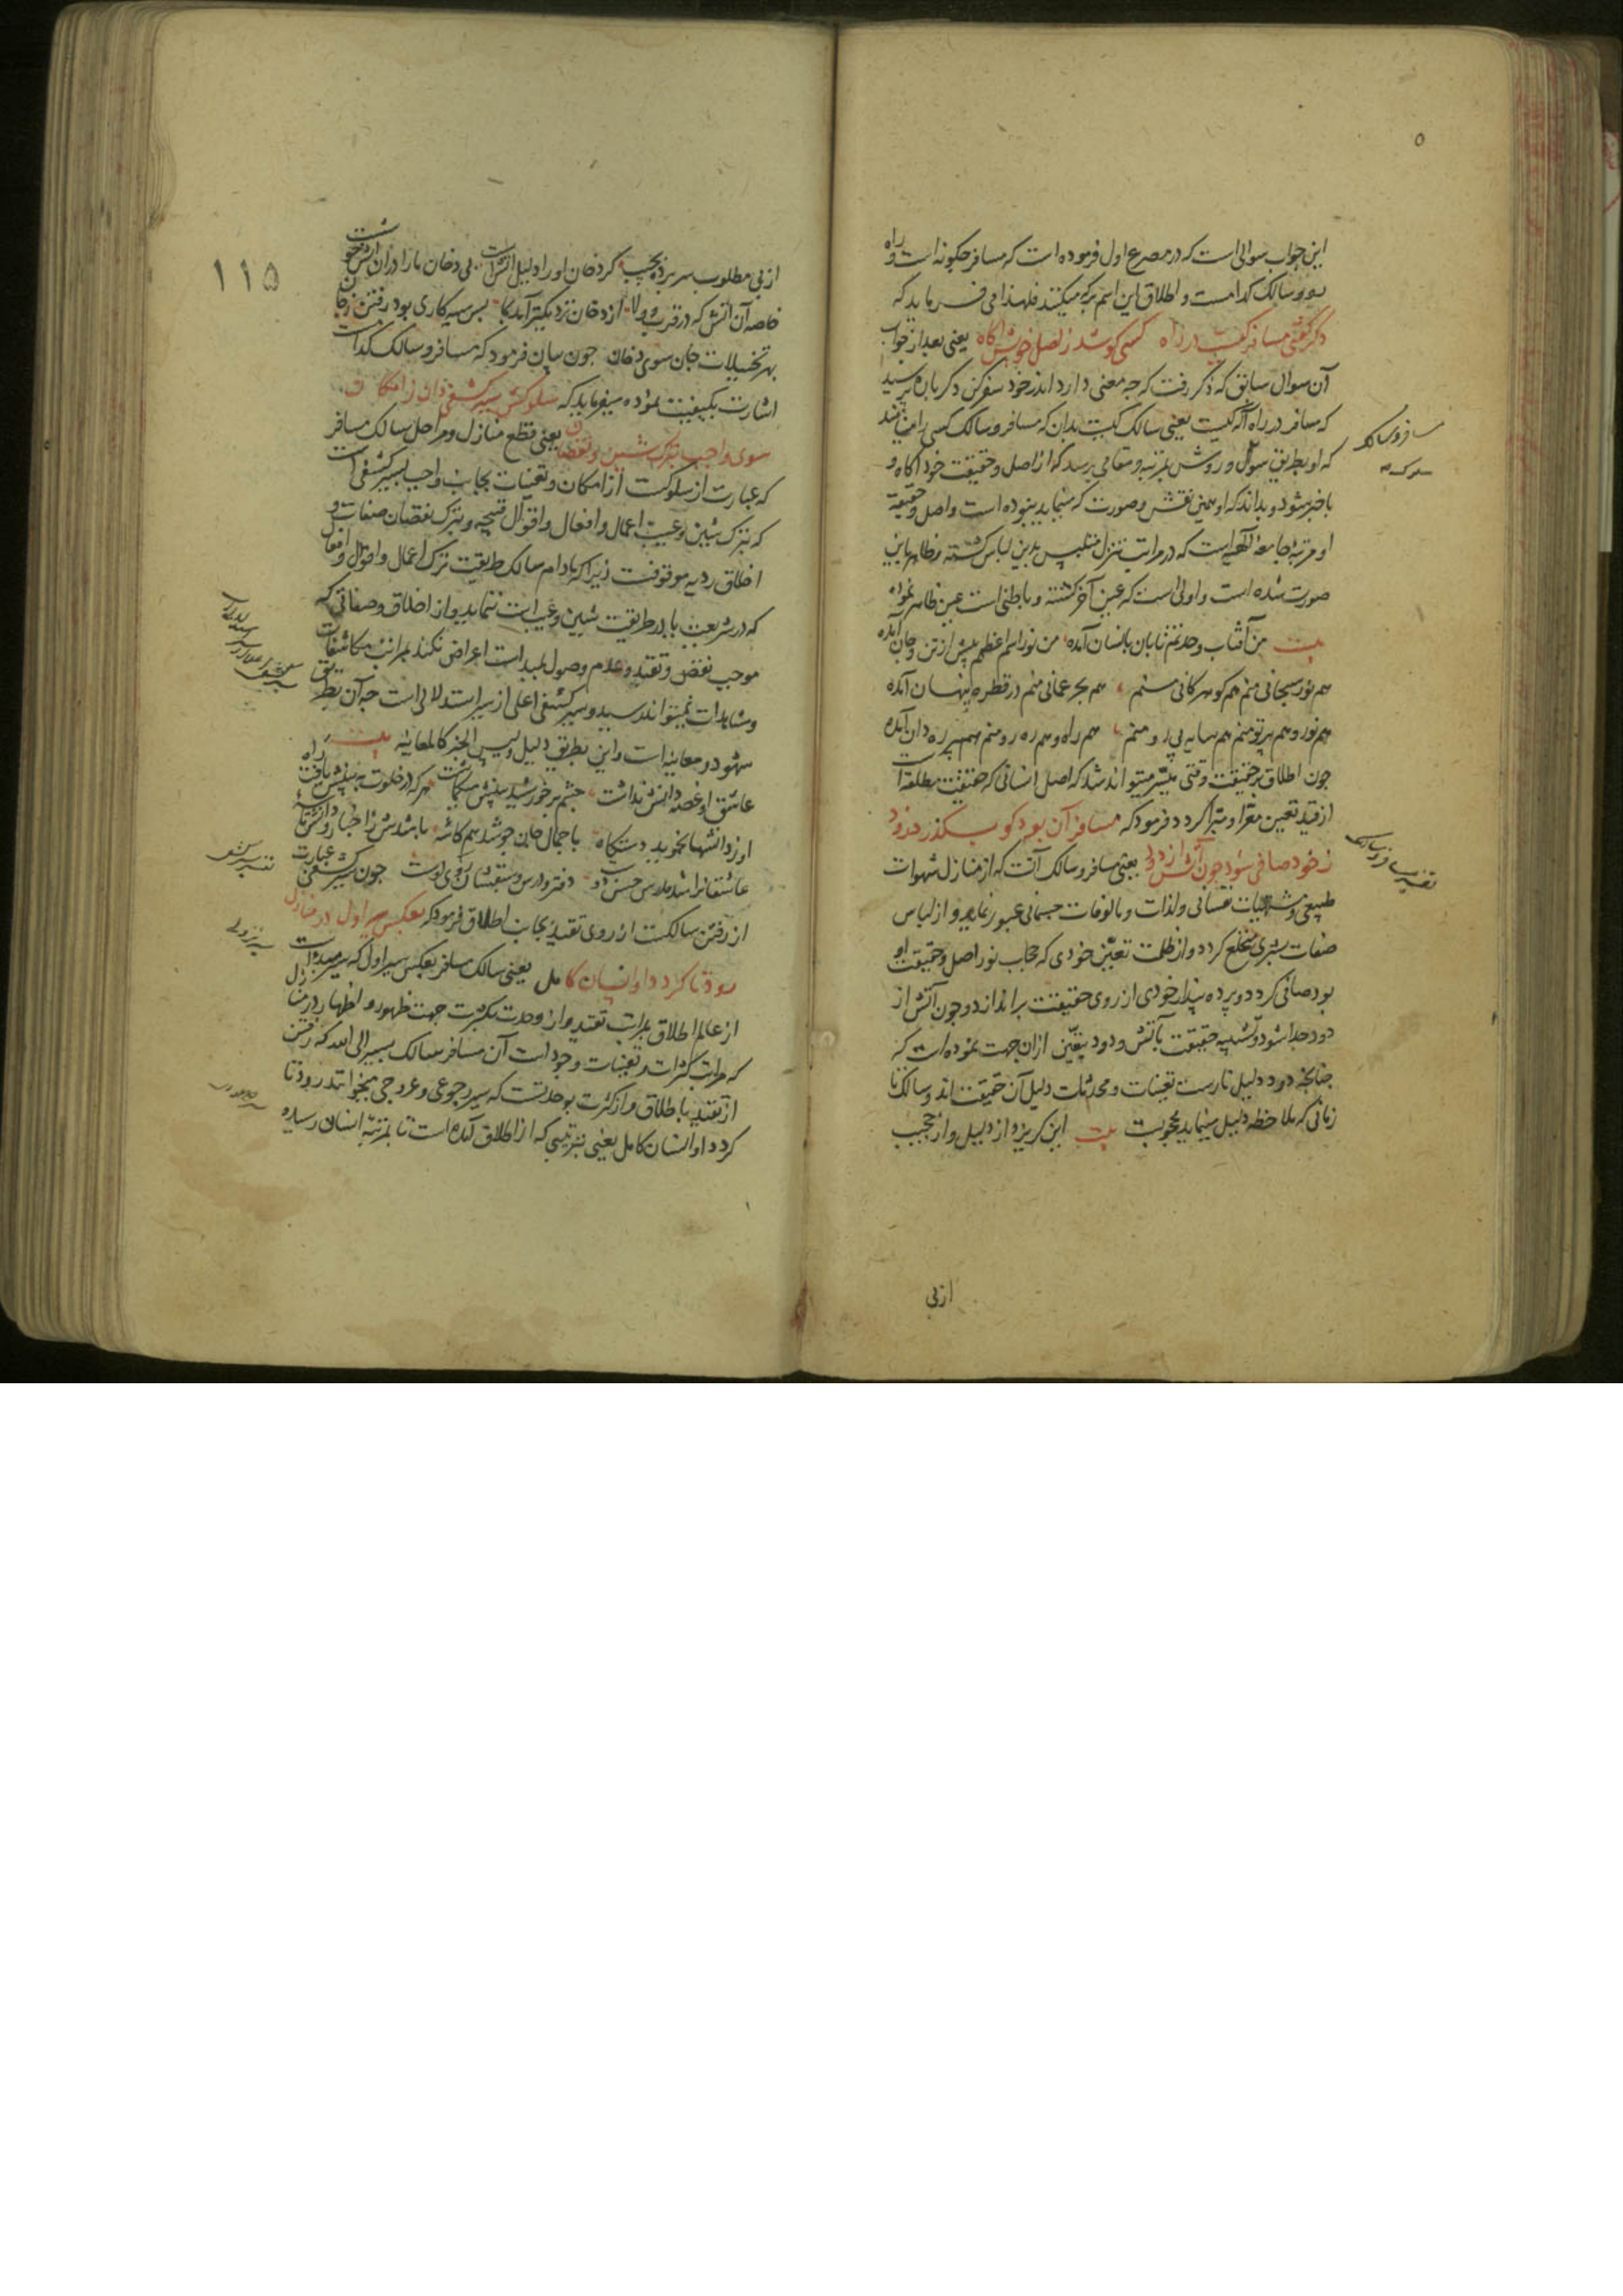 ۵
این جواب سوالی است که در مصرع اول فرموده است که مسافر چگونه است و راه
رو و سالک کدامست و اطلاق این اسم بر که میکنند فلهذا می فرماید که
دگر گفتی مسافر کیست در راه کسی کو شد ز اصل خویش آگاه یعنی بعد از جواب
آن سوال سابق که ذکر رفت که چه معنی دارد اندر خود سفر کن دگر باره پرسید
که مسافر در راه اله کیست یعنی سالک کیست بدان که مسافر و سالک کسی را مینامند
که او بطریق سلوک و روش بمرتبه و مقامی برسد که از اصل و حقیقت خود آگاه و
با خبر شود و بداند که او همین نقش و صورت که مینماید نبوده است و اصل و حقیقة
او مرتبهٔ جامعهٔ الهیه است که در مراتب تنزل متلبس بدین لباس گشته و ظاهر باین
صورت شده است و اولی است که عین آخر گشته و باطنی است عین ظاهر نموده
بیت من آفتاب وحدتم تابان بانسان آمده من نور اسم اعظمم پیش از تن و جان آمده
هم نور سبحانی منم هم گوهر کانی منم هم بحر عمانی منم در قطره پنهان آمده
هم نور و هم پرتو منم هم سایه پی رو منم هم راه و هم ره رو منم هم پیر ره دان آمده
چون اطلاق بر حقیقت وقتی میسر میتواند شد که اصل انسانی که حقیقت مطلقه است
از قید تعین معرا و مبرا گردد فرمود که مسافر آن بود کو بگذرد زود
ز خود صافی شود چون آتش از دود یعنی مسافر و سالک آنست که از منازل شهوات
طبیعی و مشتهیات نفسانی و لذات و مالوفات جسمانی عبور نماید و از لباس
صفات بشری منخلع گردد و از ظلمت تعین خودی که حجاب نور اصل و حقیقت او
بود صافی گردد و پرده پندار خودی از روی حقیقت براندازد و چون آتش از
دود جدا شود و تشبیه حقیقت بآتش و دود بتعین ازان جهت نموده است که
چنانچه دود دلیل نارست تعینات و محدثات دلیل آن حقیقت اند و سالک تا
زمانی که ملاحظه دلیل مینماید محجوبست بیت این گریزد از دلیل و از حجیب
مسافر و سالک
تفسیر مسافر و سالک
از پی
۱۱۵
از پی مطلوب سر برده بجیب گر دخان او را دلیل آتش است بی دخان ما را در آن آتش خوشست
خاصه آن آتش که در قرب و ولا از دخان نزدیکتر آمد بما پس سیه کاری بود رفتن ز جان
بهر تخییلات جان سوی دخان چون بیان فرمود که مسافر و سالک کدامست
اشارت بکیفیت نموده میفرماید که سلوکش سیر کشفی دان ز امکان
سوی واجب بترک شین و نقصان یعنی قطع منازل و مراحل سالک مسافر
که عبارت از سلوکست از امکان و تعینات بجانب واجب سیر کشفی است
که بترک شین و عیب اعمال و افعال و اقوال قبیحه و بترک نقصان صفات و
اخلاق ردیه موقوفست زیرا که مادام سالک طریقت ترک اعمال و اقوال و افعال
که در شریعت یا در طریقت شین و عیب است ننماید و از اخلاق و صفاتی که
موجب نقص و تقید و عدم وصول بمبدا است اعراض نکند بمراتب مکاشفات
و مشاهدات نمیتواند رسید و سیر کشفی اعلی از سیر استدلالی است چه آن بطریق
شهود و معاینه است و این بطریق دلیل و لیس الخبر کالمعاینه بیت
عاشق او غصه دانش نداشت چشم بر خورشید بینش میگماشت هر که در خلوت به بینش یافت راه
او ز دانشها نجوید دستگاه با جمال جان چو شد هم کاسهٔ باشدش ز اخبار و دانش تاسهٔ
عاشقانرا شد مدرس حسن دوست دفتر و درس و سبقشان روی اوست چون سیر کشفی عبارت
از رفتن سالکست از روی تقید بجانب اطلاق فرمود که بعکس سیر اول در منازل
رود تا گردد او انسان کامل یعنی سالک مسافر بعکس سیر اول که سیر مبدا است
از عالم اطلاق بمراتب تقید و از وحدت بکثرت جهت ظهور و اظهار در منازل
که مراتب کثرات و تعینات وجود است آن مسافر سالک بسیر الی الله که رفتن
از تقید باطلاق و از کثرت بوحدتست که سیر رجوعی و عروجی میخوانند رود تا
گردد او انسان کامل یعنی بترتیبی که از اطلاق آمده است تا بمرتبه انسان رسیده
تفسیر سیر کشفی
سیر نزولی